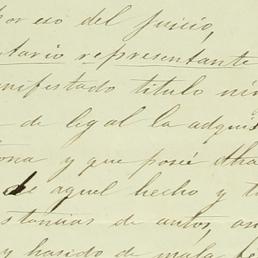 por eso del juicio,
tario representante
nifestado titulo nin
de legal la adquis
ona y que posee Ahra
de aquel hecho y t
stancias de autos, an
y ha sido de mala fe